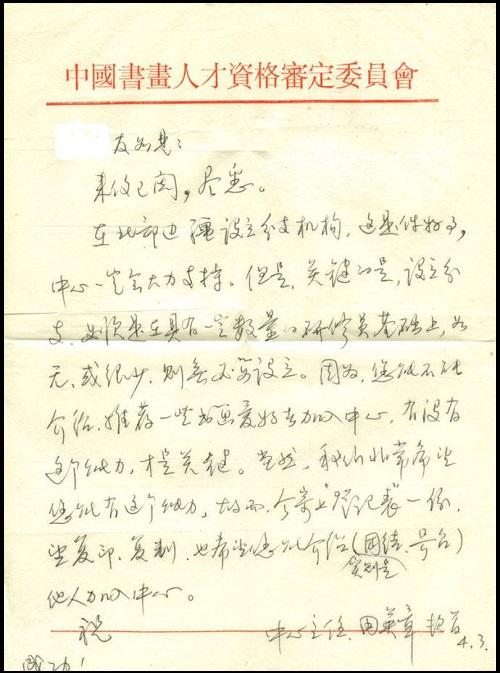 中國書畫人才資格審定委員會
友如君:
来信已阅,尽悉。
在北部边疆设立分支机构,这是件好事,
中心一定会大力支持。但是,关键的是,设立分
支,必须是在具有一定数量的研修员基础上,如
无,或很少,则无必要设立。因为,您能不能
介绍、推荐一些书画爱好者加入中心,有没有
这个能力,才是关键。当然,我们非常希望
您能有这个能力,故而,今寄上“登记表”一份,
望复印、复制,也希望您能介绍(团结、号召)
实则是
他人加入中心。
祝
中心主任 周英章
4.3.
成功!